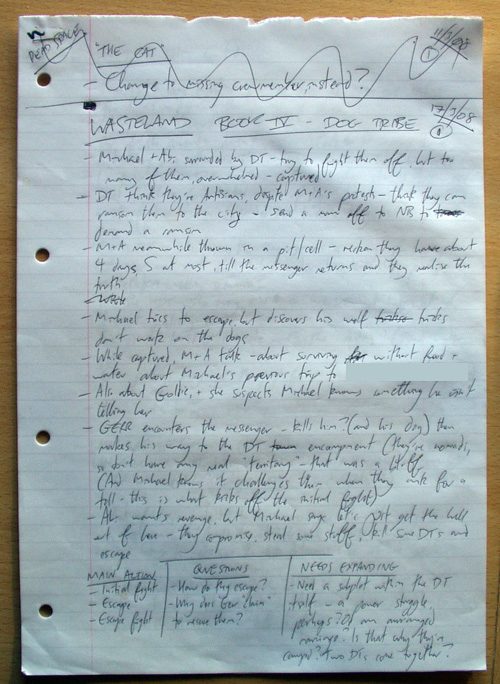 DEAD SPACE
"THE CAT"
11/3/08
①
- Change to missing crewmember instead?
17/3/08
①
WASTELAND BOOK IV - DOG TRIBE
- Michael + Abi surrounded by DT - try to fight them off, but too
many of them, overwhelmed - captured
- DT think they're Artisians, despite M+A's protests - think they can
ransom them to the city - send a man off to NB to
demand a ransom
- M+A meanwhile thrown in a pit/cell - reckon they have about
4 days, 5 at most, till the messenger returns and they realise the
truth
- Michael tries to escape, but discovers his wolf tricks
don't work on the dogs
- While captured, M+A talk - about surviving without food +
water about Michael's previous trips to
- Also about , + she suspects Michael knows something he isn't
telling her
- GERR encounters the messenger - kills him? (and his dog) then
makes his way to the DT encampment (they're nomads,
so don't have any real "territory" - that was a bluff
(And Michael knows it challenges them when they ask for a
toll - this is what kicks off the initial fight)
- Abi wants revenge, but Michael says let's just get the hell
out of here - they compromise, steal some stuff, kill some DTs and
escape
MAIN ACTION
- Initial fight
- Escape
- Escape fight
QUESTIONS
- How do they escape?
- Why does Gerr "choose"
to rescue them?
NEEDS EXPANDING
- Need a subplot within the DT
itself - a power struggle,
perhaps? Of an arranged
marriage? Is that why they're
camped? Two DTs come together?